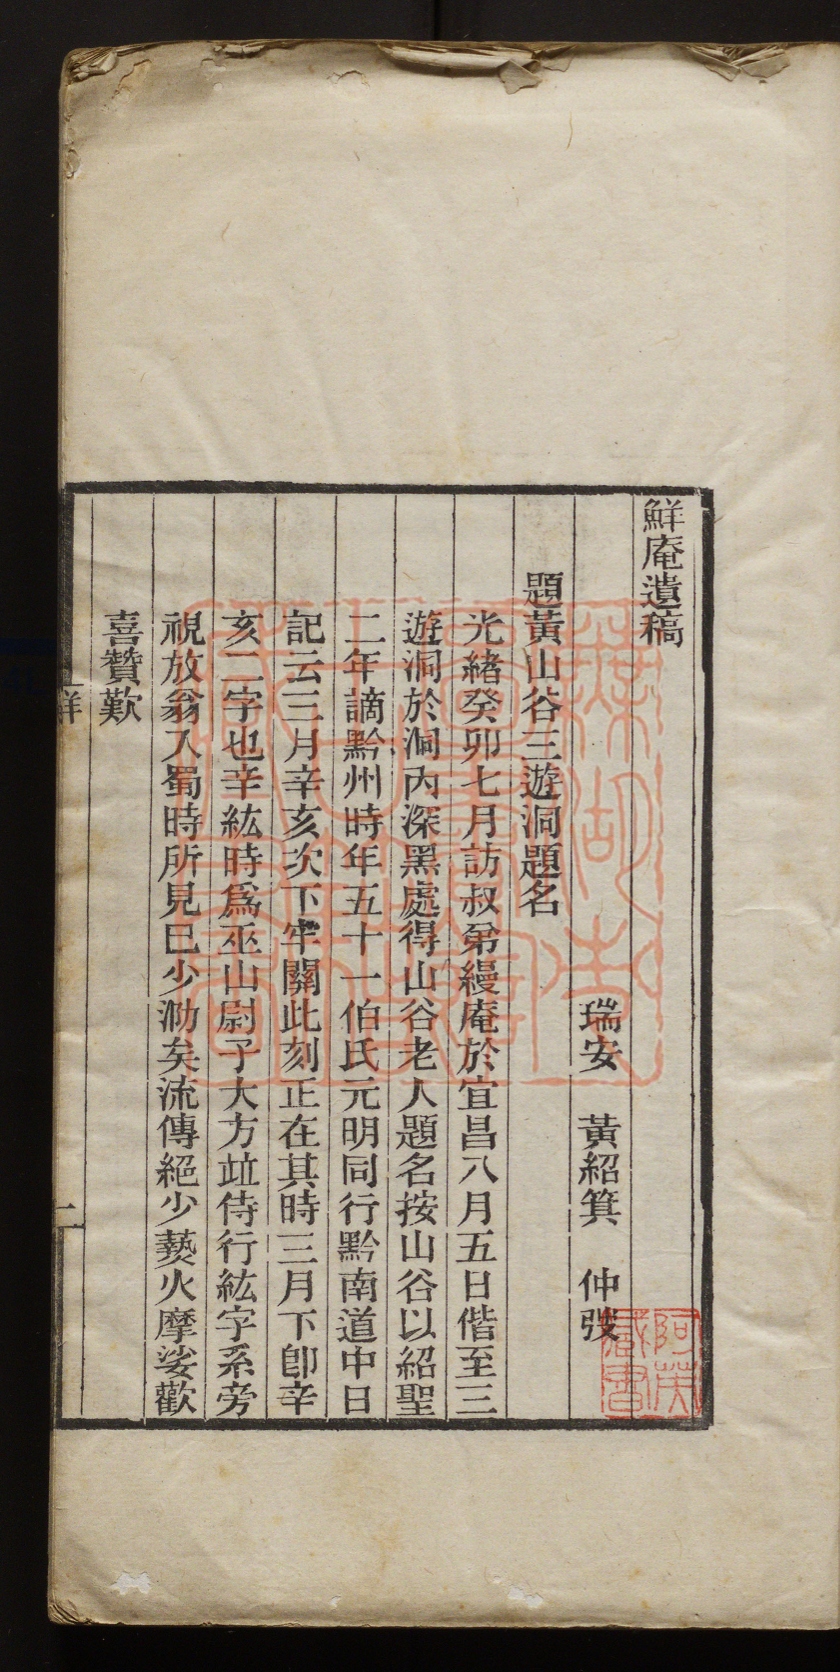 鮮庵遺稿
瑞安　黃紹箕　仲弢
題黃山谷三遊洞題名
光緒癸卯七月訪叔弟縵庵於宜昌八月五日偕至三
遊洞於洞內深黑處得山谷老人題名按山谷以紹聖
二年謫黔州時年五十一伯氏元明同行黔南道中日
記云三月辛亥次下牢關此刻正在其時三月下卽辛
亥二字也辛紘時爲巫山尉子大方竝侍行紘字系旁
視放翁入蜀時所見已少泐矣流傳絕少爇火摩娑歡
喜贊歎
鮮
一
蕪湖
藏書
阿英藏書